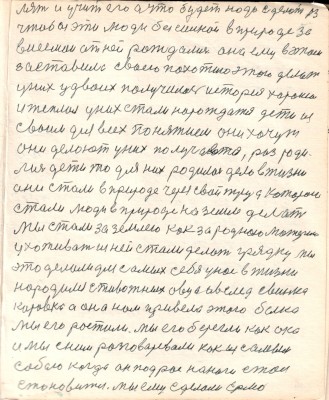 лят и учит его а что будет надо сделат из
чтобы эти люди без иной в природе за
вместом от ней рождалися она ему в этом
заставила своею похотию этого делат
у них удвоих получился история хороша
и тепла у них стали нарождатся дети и
своим для всех понятием они хочут
они делают у них получается, раз роди-
лися дети то для них родилося дело в жизни
они стали в природе через свой труд которого
стали люди в природе на земли делат
мы стали за землею как за родною матерею
ухаживат и ней стали делат грядку мы
это делали для самых себя у нас в жизни
народили животных овца вслед свинка
коровка а она нам привела этого бычка
мы его растили. мы его берегли как ока
и мы с ним разговаревали как и с самым
собою когда он подрос на ноги стал
становится. мы ему сделали ярмо